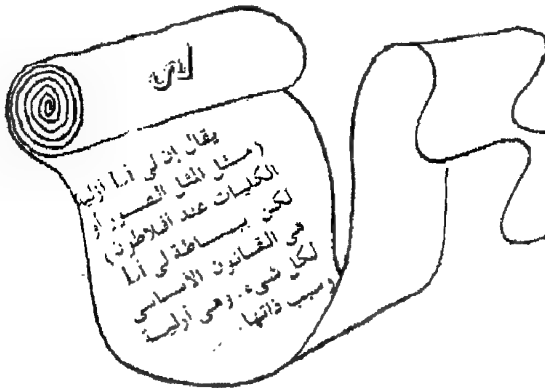 لى
يقال إن لى أ
(مثل المثل الصور أو
الكليات عند أفلاطون)
لكن ببساطة لى
هى القانون الأساسى
لكل شىء. وهى أزلية
وسبب ذاتها.